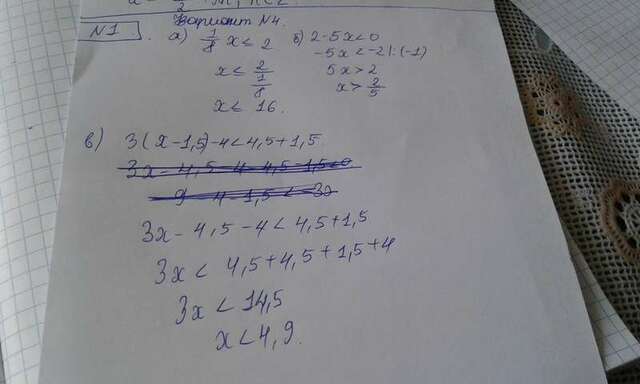 Вариант N4.
N1. а) 1/8 x ≤ 2 б) 2-5x<0
-5x<-2|:(-1)
x ≤ 2/(1/8) 5x>2
x>2/5
x ≤ 16.
в) 3(x-1,5)-4<4,5+1,5.
3x-4,5-4<4,5+1,5
3x<4,5+4,5+1,5+4
3x<14,5
x<4,9.